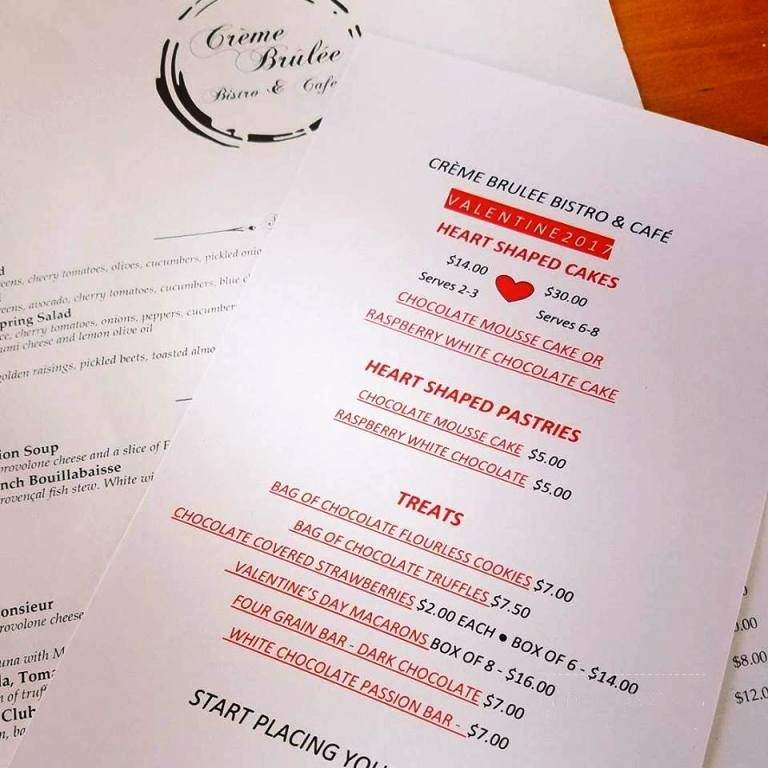 Crème
Brûlée
Bistro & Cafe
eens, cheery tomatoes, olives, cucumbers, pickled onio
eens, avocado, cherry tomatoes, cucumbers, blue c
pring Salad
ce, cherry tomatoes, onions, peppers, cucumber
umi cheese and lemon olive oil
golden raisings, pickled beets, toasted almo
ion Soup
provolone cheese and a slice of F
nch Bouillabaisse
rovençal fish stew. White wi
onsieur
rovolone cheese
una with M
la, Toma
n of truff
Club
n, ba
CRÈME BRULEE BISTRO & CAFÉ
VALENTINE2017
HEART SHAPED CAKES
$14.00 $30.00
Serves 2-3 Serves 6-8
CHOCOLATE MOUSSE CAKE OR
RASPBERRY WHITE CHOCOLATE CAKE
HEART SHAPED PASTRIES
CHOCOLATE MOUSSE CAKE $5.00
RASPBERRY WHITE CHOCOLATE $5.00
TREATS
BAG OF CHOCOLATE FLOURLESS COOKIES $7.00
BAG OF CHOCOLATE TRUFFLES $7.50
CHOCOLATE COVERED STRAWBERRIES $2.00 EACH ● BOX OF 6 - $14.00
VALENTINE'S DAY MACARONS BOX OF 8 - $16.00
FOUR GRAIN BAR - DARK CHOCOLATE $7.00
WHITE CHOCOLATE PASSION BAR - $7.00
START PLACING YOU
$8.00
$12.0